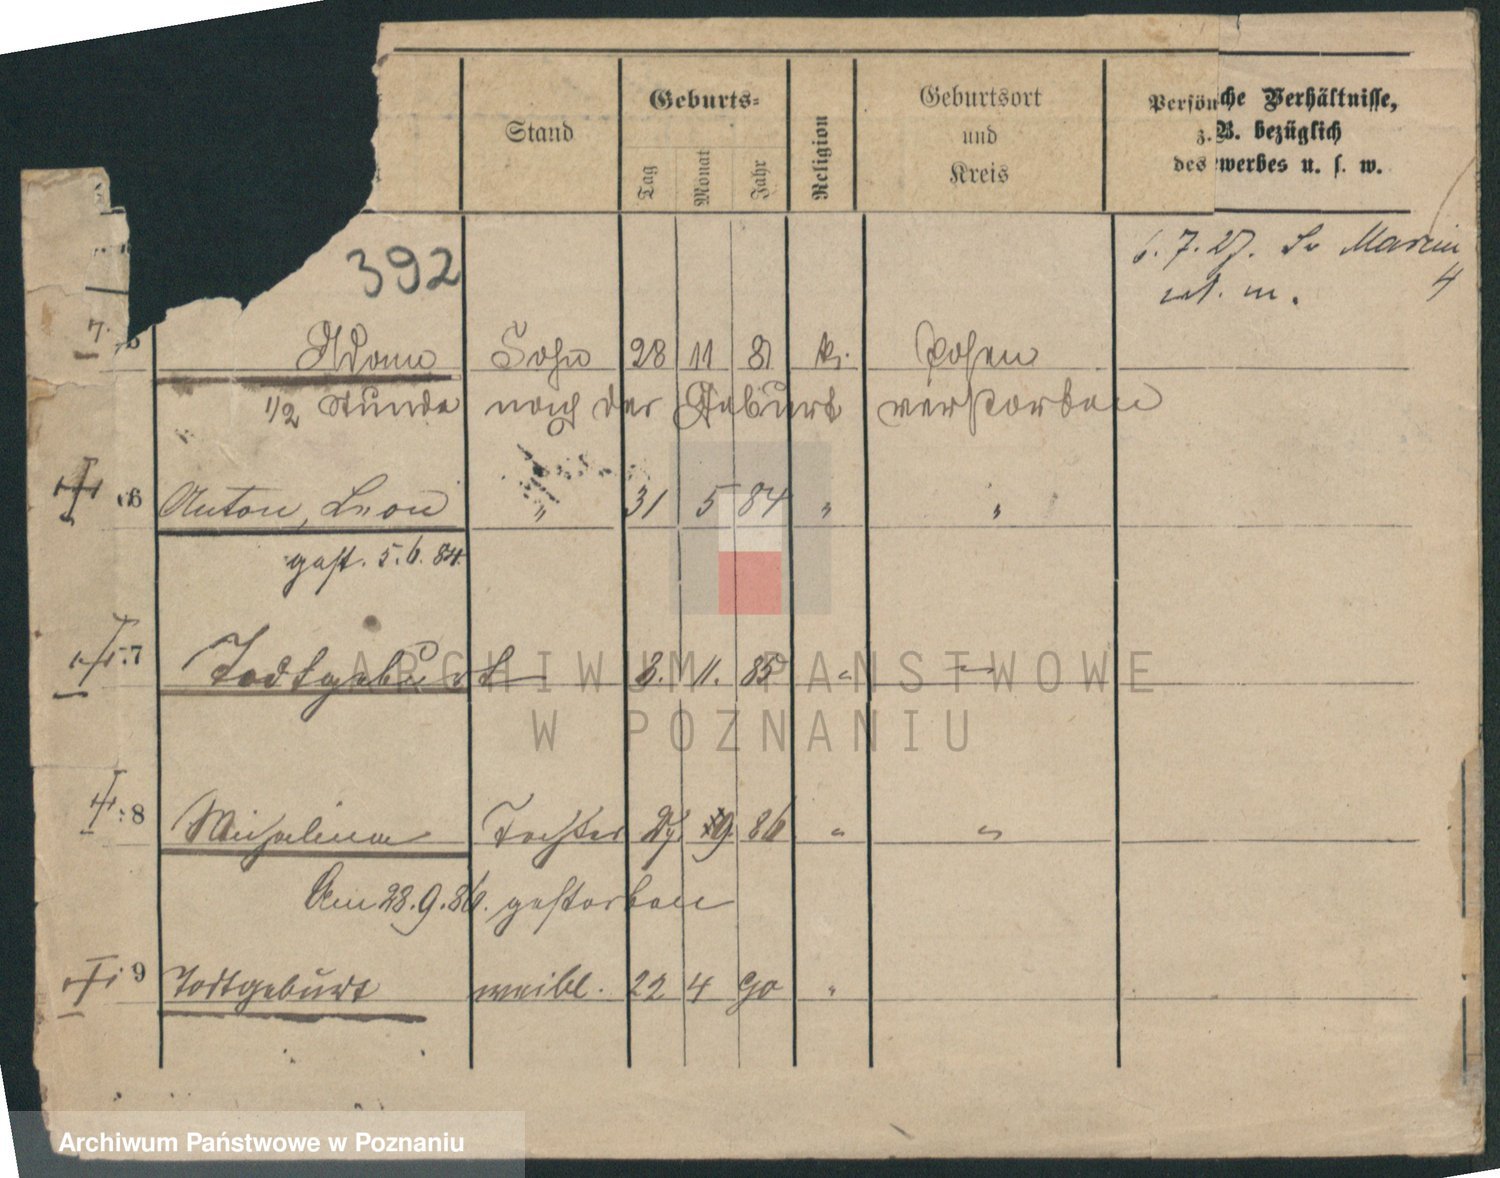 Stand
Geburts-
Tag
Monat
Jahr
Religion
Geburtsort
und
Kreis
Persön che Verhältnisse,
z. B. bezüglich
des ewerbes u. s. w.
392
6. 7. 27. Sv Marcin
4
m.
7.
Adam Sohn 28 11 81 k. Posen
1/2 Stunde nach der Geburt verstorben
6 Anton, Leon " 31 5 84 " "
gest. 5.6.84.
7 Todtgeburt 3. 11. 85 " "
8 Michalina Tochter 27. 9. 86 " "
Am 28.9.86. gestorben
9 Todtgeburt weibl. 22 4 90 "
ARCHIWUM PAŃSTWOWE
W POZNANIU
Archiwum Państwowe w Poznaniu